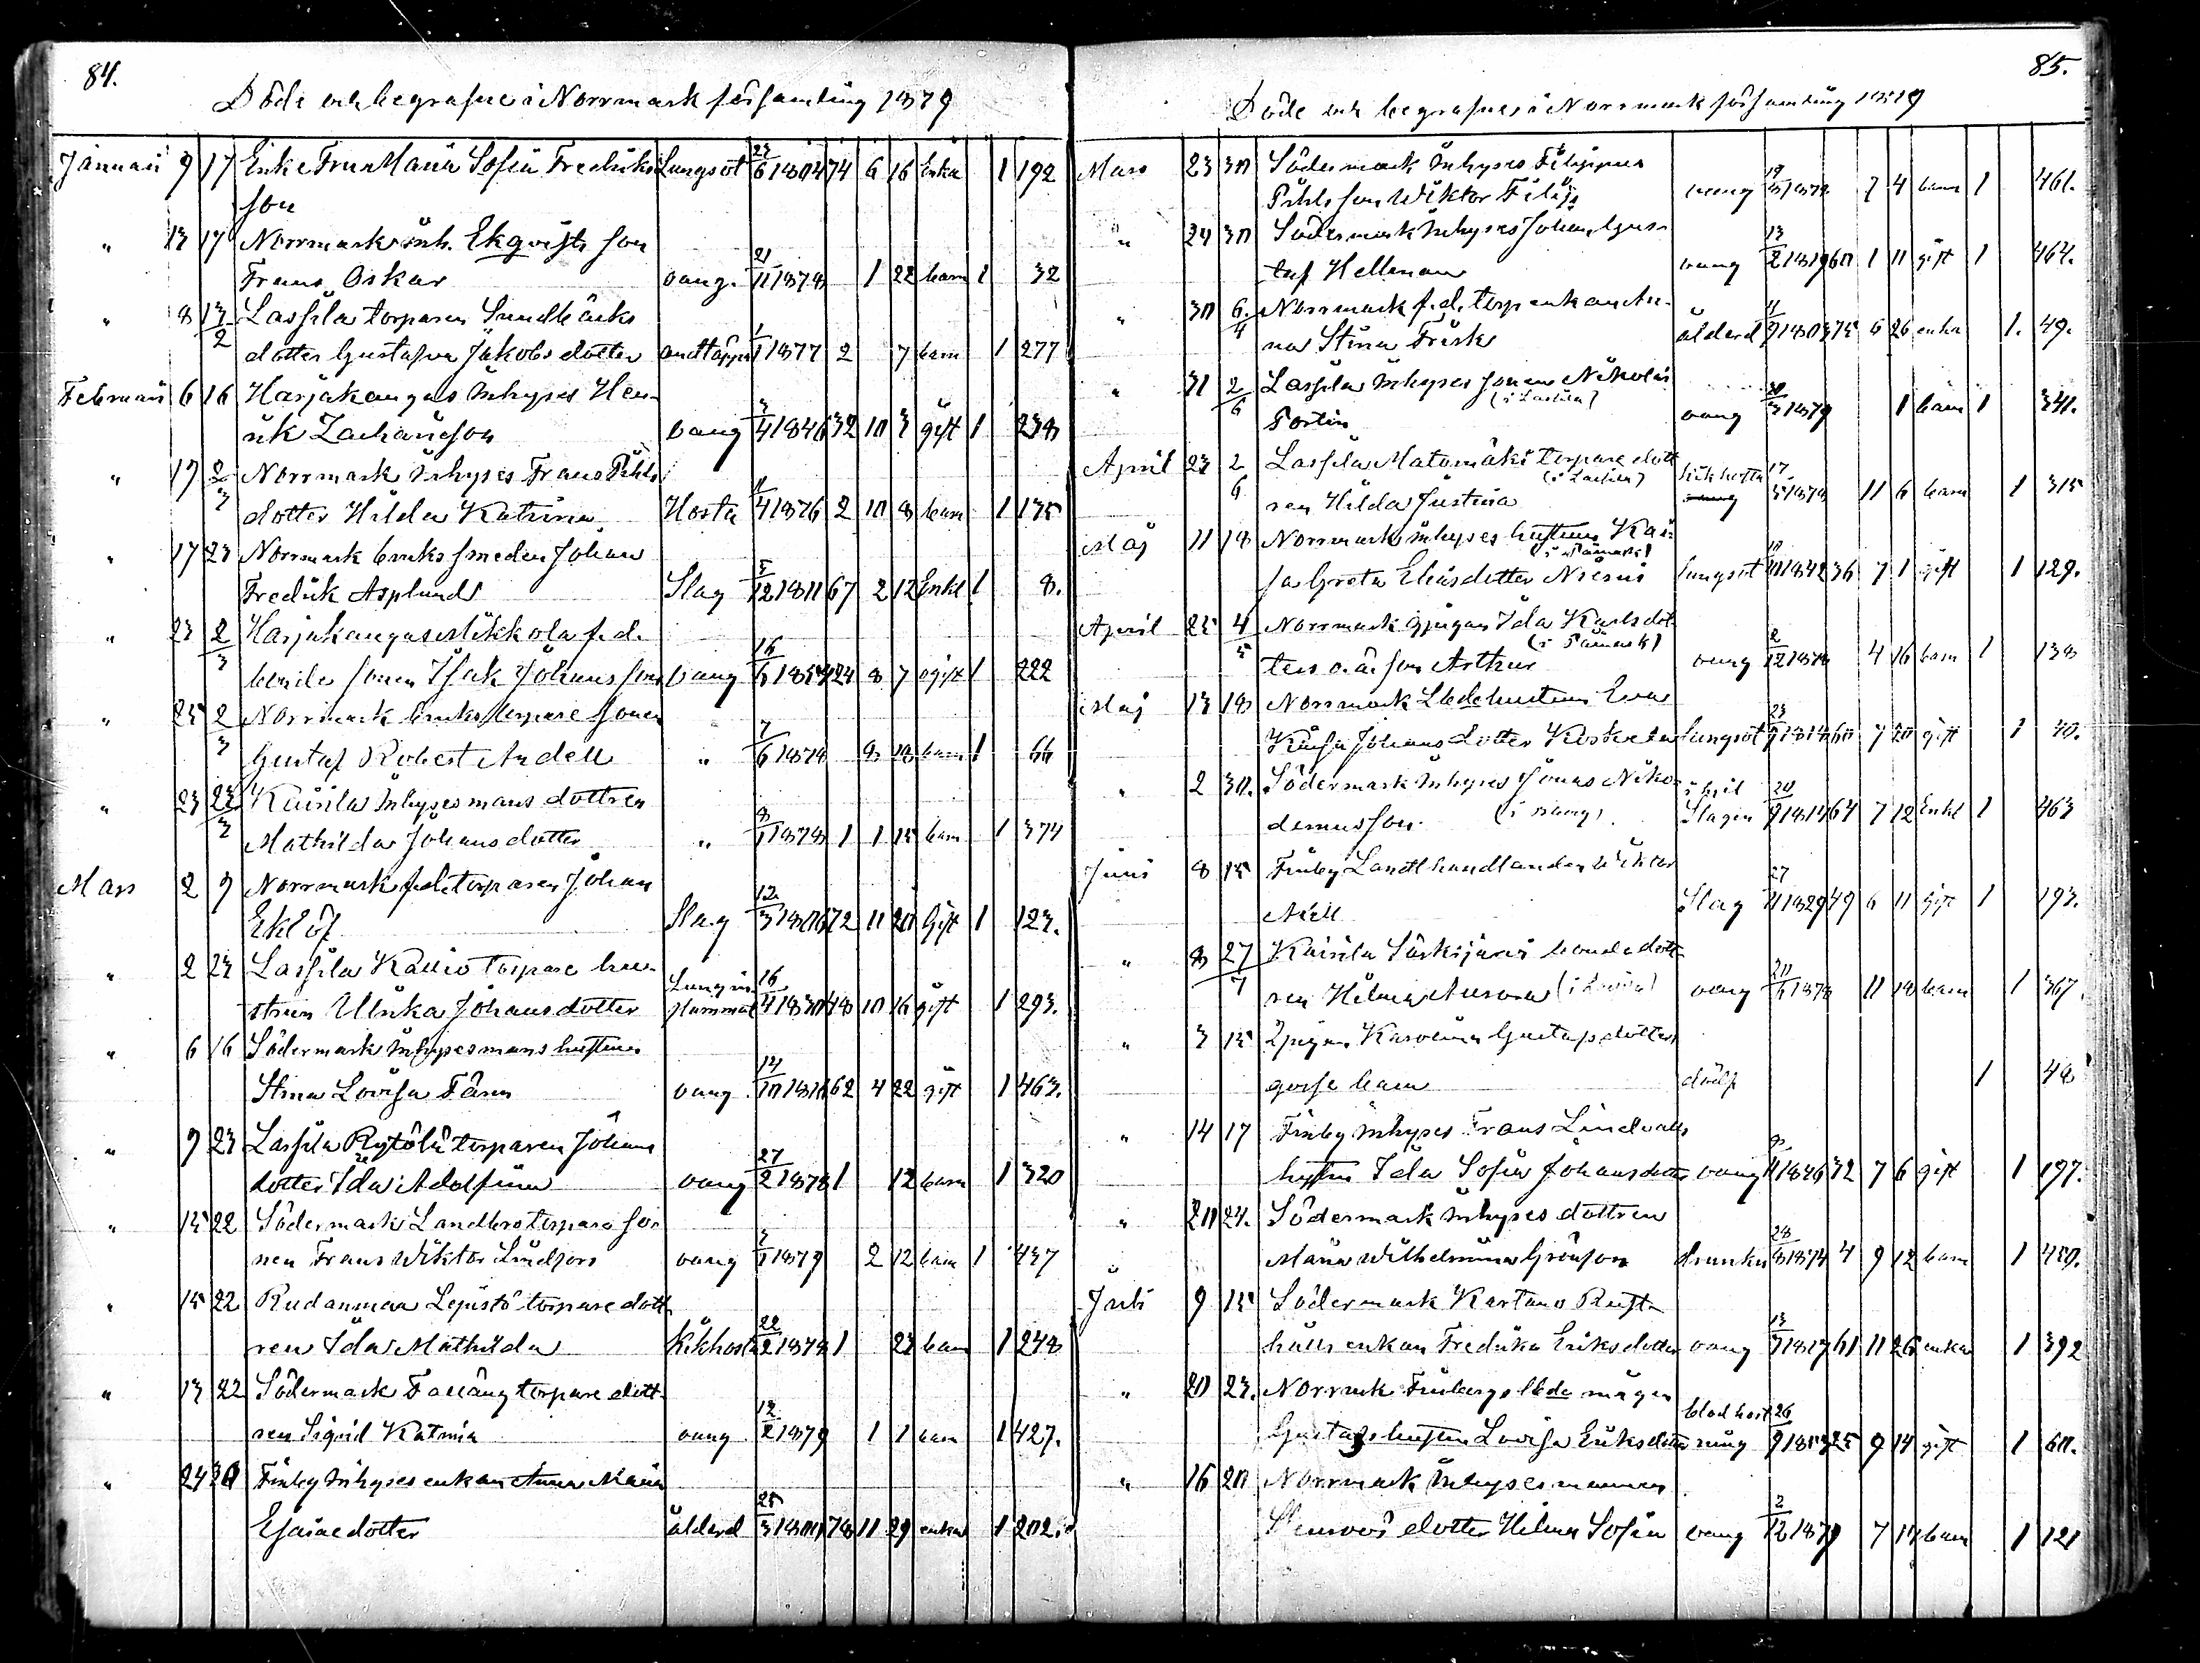 84.
Döde och begrafne i Norrmark församling 1879
Januari 9 17 Enke Frun Maria Sofia Fredriks Lungsot 23/6 1804 74 6 16 Enka 1 192
son
" 13 17 Norrmark inh. Ekqvists son
Frans Oskar oang. 21/11 1878 1 22 barn 1 32
" 8 13/2 Lassila torparen Sundbäcks
dotter Gustafva Jakobsdotter andtäppa 1/1 1877 2 7 barn 1 277
Februari 6 16 Harjakangas Inhyses Hen-
rik Zachariesson oang 3/4 1846 32 10 3 gift 1 238
" 17 2/3 Norrmark Inhyses Frans Pihls
dotter Hilda Katrina Hosta 4 1876 2 10 8 barn 1 175
" 17 23 Norrmark bruks smeden Johan
Fredrik Asplund Slag 5/12 1811 67 2 12 Enkl 1 8.
" 23 2/3 Harjakangas Mikkola f.d.
bonde sonen Isak Johansson oang 16/6 1854 24 8 7 ogift 1 222
" 25 2/3 Norrmark bruks torpare sonen
Gustaf Robert Andell " 7/6 1878 8 18 barn 1 66
" 23 23/3 Kairila Inhysesmans dottren
Mathilda Johansdotter " 8/1 1878 1 1 15 barn 1 374
Mars 2 9 Norrmark f.d. torparen Johan
Eklöf Slag 12/3 1806 72 11 20 Gift 1 123.
" 2 23 Lassila Kallio torpare hu-
strun Ulrika Johansdotter 16/4 1830 48 10 16 gift 1 293.
" 6 16 Södermark Inhysesmans hustrun
Stina Lovisa Färm oang 14/10 1816 62 4 22 gift 1 463.
" 9 23 Lassila Rytölä torparen Johans
dotter Ida Adolfina oang 27/2 1878 1 12 barn 1 320
" 15 22 Södermark Landbro torpare so-
nen Frans Wiktor Lindfors oang 3/1 1879 2 12 barn 1 437
" 15 22 Rudanmaa Lepistö torpare dott
ren Ida Mathilda kikhosta 22/2 1878 1 23 barn 1 248
" 13 22 Södermark Fallång torpare dott
ren Sigrid Katrina oang 12/2 1879 1 1 barn 1 427.
" 24 30 Finby Inhyses enkan Anna Maria
Esaiaedotter ålderd 25/3 1800 78 11 29 enka 1 202.
85.
Döde och begrafne i Norrmark församling 1879
Mars 23 30 Södermark Inhyses Filippus
Pihls son Wiktor Filip oang 19/8 1878 7 4 barn 1 461.
" 24 30 Södermark Inhyses Johan Gus-
taf Hellman oang 13/2 1819 60 1 11 gift 1 464.
" 30 6/4 Norrmark f.d. torp enkan An-
na Stina Frisk ålderd 4/9 1803 75 6 26 enka 1. 49.
" 31 2/6 Lassila Inhyses sonen Nikolai
(i Lassila)
Fortin oang 30/3 1879 1 barn 1 341.
April 23 2/6 Lassila Matomäki torpare dott
(i Lassila)
ren Hilda Justina kikhosta 17/5 1878 11 6 barn 1 315
Maj 11 18 Norrmark Inhyses hustrun Kai-
(i Påmark)
sa Greta Eliasdotter Niemi lungsot 10/11 1842 36 7 1 gift 1 129.
April 25 4/5 Norrmark pigan Ida Karlsdot
(i Påmark)
ters o.ä. son Arthur oang 2/12 1878 4 16 barn 1 138
Maj 13 18 Norrmark Lbdehustrun Eva
Kaisa Johansdotter Koskela lungsot 23/9 1818 60 7 20 gift 1 40.
" 2 30. Södermark Inhyses Jonas Niko-
demusson Slagen 20/9 1814 64 7 12 Enkl 1 463
Juni 8 15 Finby Landthandlanden Wiktor
Axell Slag 27/11 1829 49 6 11 Gift 1 193.
" 8 27/7 Kairila Särkijärvi bonde dott
ren Hilma Aurora oang 20/6 1878 11 18 barn 1 367.
" 3 15 Pigan Karolina Gustafsdotters
gosse barn dödf 1 48
" 14 17 Finby Inhyses Frans Lindvalls
hustru Ida Sofia Johansdotter oang 8/11 1846 32 7 6 gift 1 197.
" 20 24. Södermark Inhyses dottren
Maria Wilhelmina Grönfors drunkn 28/8 1874 4 9 12 barn 1 459.
Juli 9 15 Södermark Kartano Rust-
hålls enkan Fredrika Eriksdotter oang 13/7 1817 61 11 26 enka 1 392
" 20 23. Norrmark Finbergs Lbde mågen
Gustafs hustru Lovisa Eriksdotter blodhostning 26/9 1853 25 9 14 gift 1 60.
" 16 20 Norrmark Inhysesmannen
Stenroos dotter Hilma Sofia oang 2/12 1879 7 14 barn 1 121